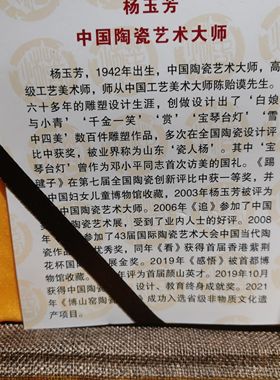 杨玉芳
中国陶瓷艺术大师
杨玉芳，1942年出生，中国陶瓷艺术大师，高
级工艺美术师，师从中国工艺美术大师陈贻谟先生。
六十多年的雕塑设计生涯，创做设计出了‘白娘
与小青’‘千金一笑’‘赏’‘宝琴台灯’‘雪
中四美’数百件雕塑作品，多次在全国陶瓷设计评
比中获奖，被业界称为山东‘瓷人杨’。其中‘宝
琴台灯’曾作为邓小平同志首次访美的国礼。《踢
毽子》在第七届全国陶瓷创新评比中获一等奖，并
中国妇女儿童博物馆收藏，2003年杨玉芳被评为
中国陶瓷艺术大师。2006年《追》参加了中国
陶瓷艺术展，受到了业内人士的好评。2008年
参加了43届国际陶瓷艺术大会中国当代陶
瓷作品优秀奖，同年《看》获得首届香港紫荆
花杯国际展金奖。2019年《感悟》被首都博
物馆收藏。年评为首届颜山英才。2019年10月
获得中国陶瓷设计、教育终身成就奖。2021
年《博山窑陶瓷》成功入选省级非物质文化遗
产项目。